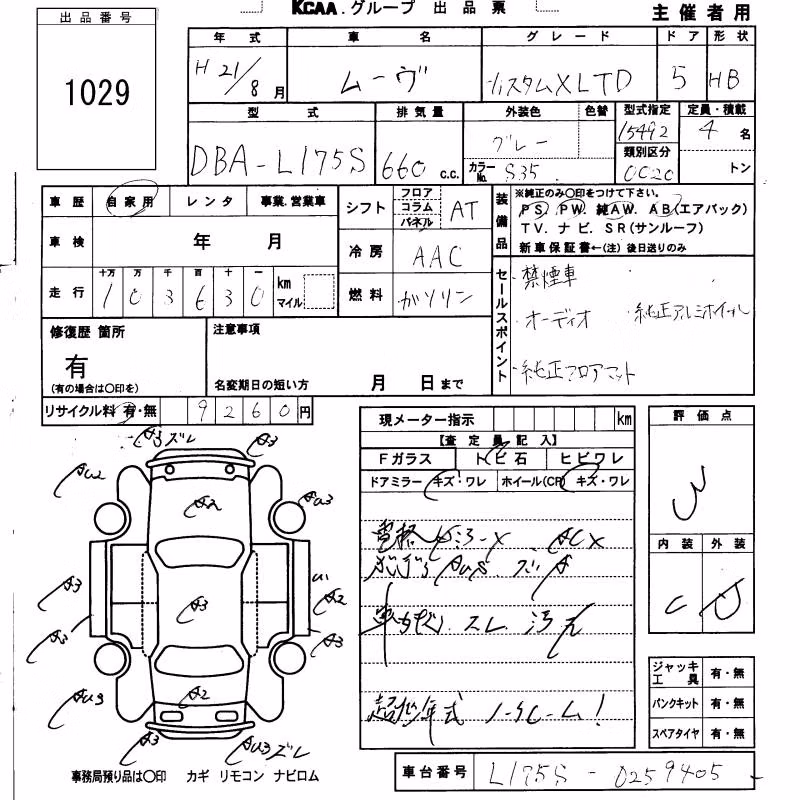 KCAA.グループ 出品票
主催者用
出品番号
1029
年式 車名 グレード ドア 形状
H21/8月 ムーヴ カスタムXLTD 5 HB
型式 排気量 外装色 色替 型式指定 定員・積載
DBA-L175S 660 c.c. グレー 15492 4名
カラーNo. S35 類別区分 0020 トン
車歴 自家用 レンタ 事業.営業車
シフト フロア コラム パネル AT
装備品 ※純正のみ〇印をつけて下さい。
PS. PW. 純AW. AB(エアバック)
TV. ナビ. SR(サンルーフ)
新車保証書←(注) 後日送りのみ
車検 年 月
冷房 AAC
走行 十万 万 千 百 十 一
103630 km マイル
燃料 ガソリン
セールスポイント
・禁煙車
・オーディオ ・純正アルミホイール
・純正フロアマット
修復歴 箇所
有
(有の場合は〇印を)
注意事項
名変期日の短い方 月 日まで
リサイクル料 有・無 9260円
現メーター指示 km
【査定員記入】
Fガラス トビ石 ヒビワレ
ドアミラー キズ・ワレ ホイール(CP) キズ・ワレ
評価点
3
内装 外装
C D
A3ズレ A3
AU2 AU3
A2
A3 A3 A2
A3 A3
AU3 A2
A3 AU3ズレ
スレ 汚れ
超低年式 ノークレーム!
ジャッキ工具 有・無
パンクキット 有・無
スペアタイヤ 有・無
事務局預り品は〇印 カギ リモコン ナビロム
車台番号 L175S-0259405